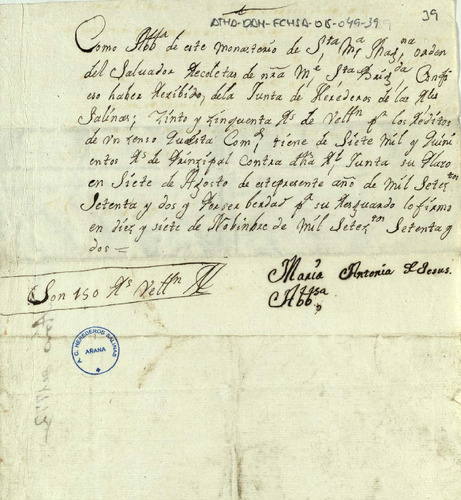 ATHA-DAH-FCHSA-015-049-39
39
Como Abb.ssa de este monasterio de S.ta M.a Mag.na orden
del Salvador Recoletas de n̄ra M.e S.ta Brig.da Confi
eso haber Rezibido, dela Junta de Herederos de las R.les
Salinas; Zinto y Zinquenta R.s de Vell.n p.r los Reditos
de Un zenso que esta Com.d tiene de Siete Mil y Quini
entos R.s de Prinzipal Contra dha R.l Junta su Plazo
en Siete de Agosto de este presente año de Mil Setez.tos
Setenta y dos y Perser berdad p.a su Resguardo lo firmo
en diez y siete de Nobiembre de Mil Setez.tos Setenta y
dos =
Maria Antonia de Jesus.
Abb.ssa
Son 150 R.s Vell.n
A.C. HEREDEROS SALINAS
AÑANA